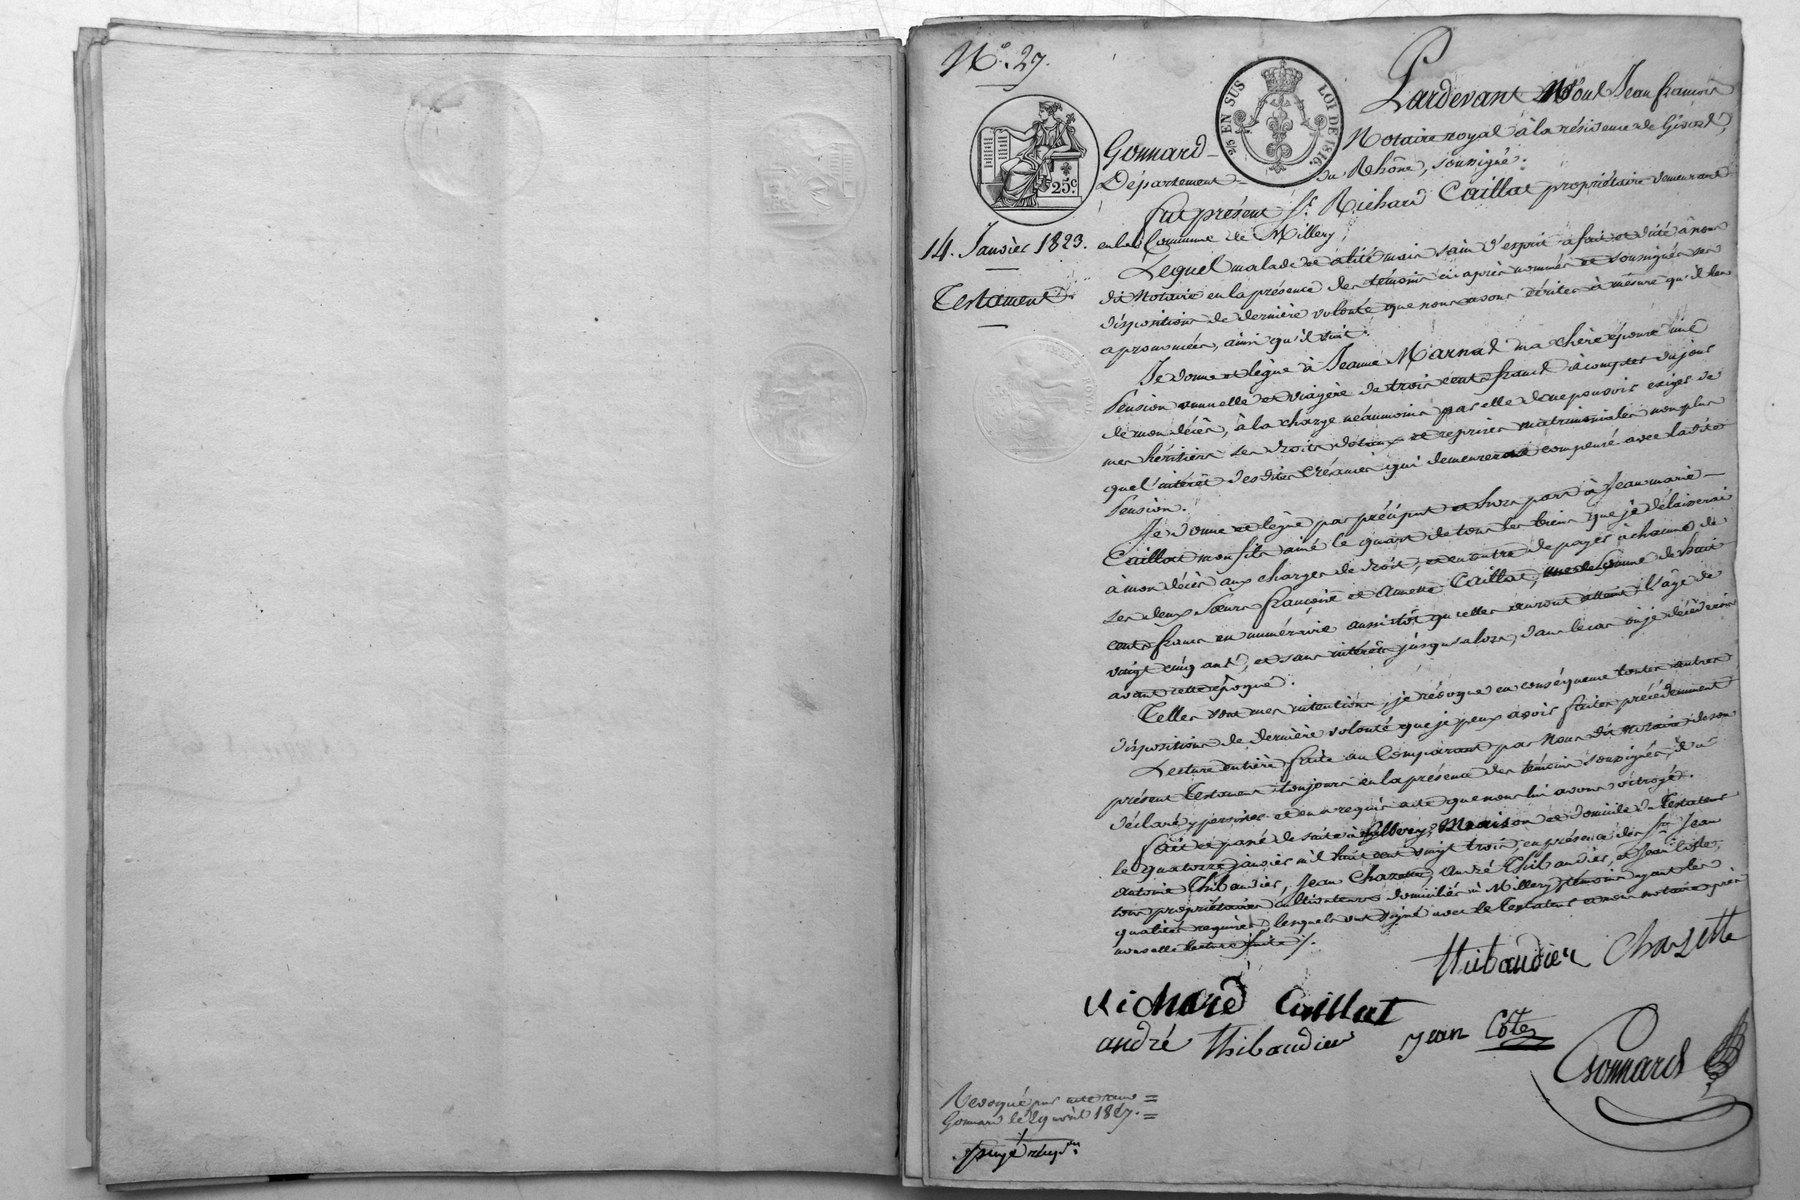 N.° 27.
25 EN SUS
LOI DE 1816.
25.c
Pardevant Nous Jean françois
Gonnard Notaire royal à la résidence de Givors,
Département du Rhône, soussigné.
fut présent S.r Richard Caillat propriétaire demeurant
14. Janvier 1823.
en la Commune de Millery,
Testament.
Lequel malade et alité mais sain d'esprit a fait et dicté à nous
dit Notaire en la présence des témoins ci après nommés et soussignés ses
dispositions de dernière volonté que nous avons écrites à mesure qu'il les
a prononcées, ainsi qu'il suit.
Je donne et lègue à Jeanne Marnas ma chère épouse une
Pension annuelle et viagère de trois cents francs à compter du jour
de mon décès, à la charge néanmoins par elle de ne pouvoir exiger de
mes héritiers ses droits dotaux et reprises matrimoniales non plus
que l'intérêt desdites Créances qui demeurera compensé avec ladite
Pension.
Je donne et lègue par préciput et hors part à Jean marie
Caillat mon fils ainé le quart de tous les biens que je délaisserai
à mon décès aux charges de droit, et en outre de payer à chacune de
ses deux Sœurs françoise et Annette Caillat, une somme de huit
cents francs en numéraire aussitôt qu'elles auront atteint l'âge de
vingt cinq ans, et sans intérêts jusqu'alors, dans le cas où je décèderois
avant cette époque.
Telles sont mes intentions, je révoque en conséquence toutes autres
dispositions de dernière volonté que je peux avoir faites précédemment
Lecture entière faite au Comparant par Nous dit Notaire de son
présent Testament toujours en la présence des témoins soussignés, il a
déclaré y persister et en a requis acte que nous lui avons octroyé.
fait et passé de suite à Millery, Maison et domicile du Testateur
le quatorze janvier mil huit cent vingt trois, en présence des S.rs Jean
Antoine Thibaudier, Jean Chazette, André Thibaudier, et Jean Coste,
tous propriétaires cultivateurs domiciliés à Millery, témoins ayant les
qualités requises, lesquels ont signé avec le Testateur et nous notaire après
nouvelle lecture faite ./.
thibaudier Chazette
Richard Caillat
andré thibaudier
Jean Côte
Gonnard
Revoqué par acte reçu
Gonnard le 29 avril 1827.